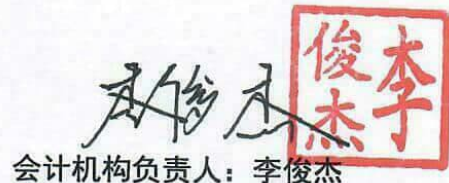 李俊杰
李俊杰
会计机构负责人：李俊杰